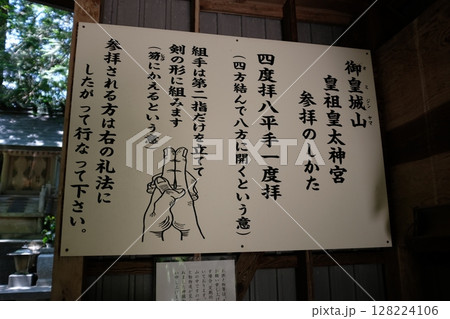 御皇城山
皇祖皇太神宮
参拝のしかた
四度拝八平手一度拝
(四方結んで八方に開くという意)
組手は第二指だけを立てて
剣の形に組みます
(芴にかえるという意)
参拝される方は右の礼法に
したがって行なって下さい。
128224106